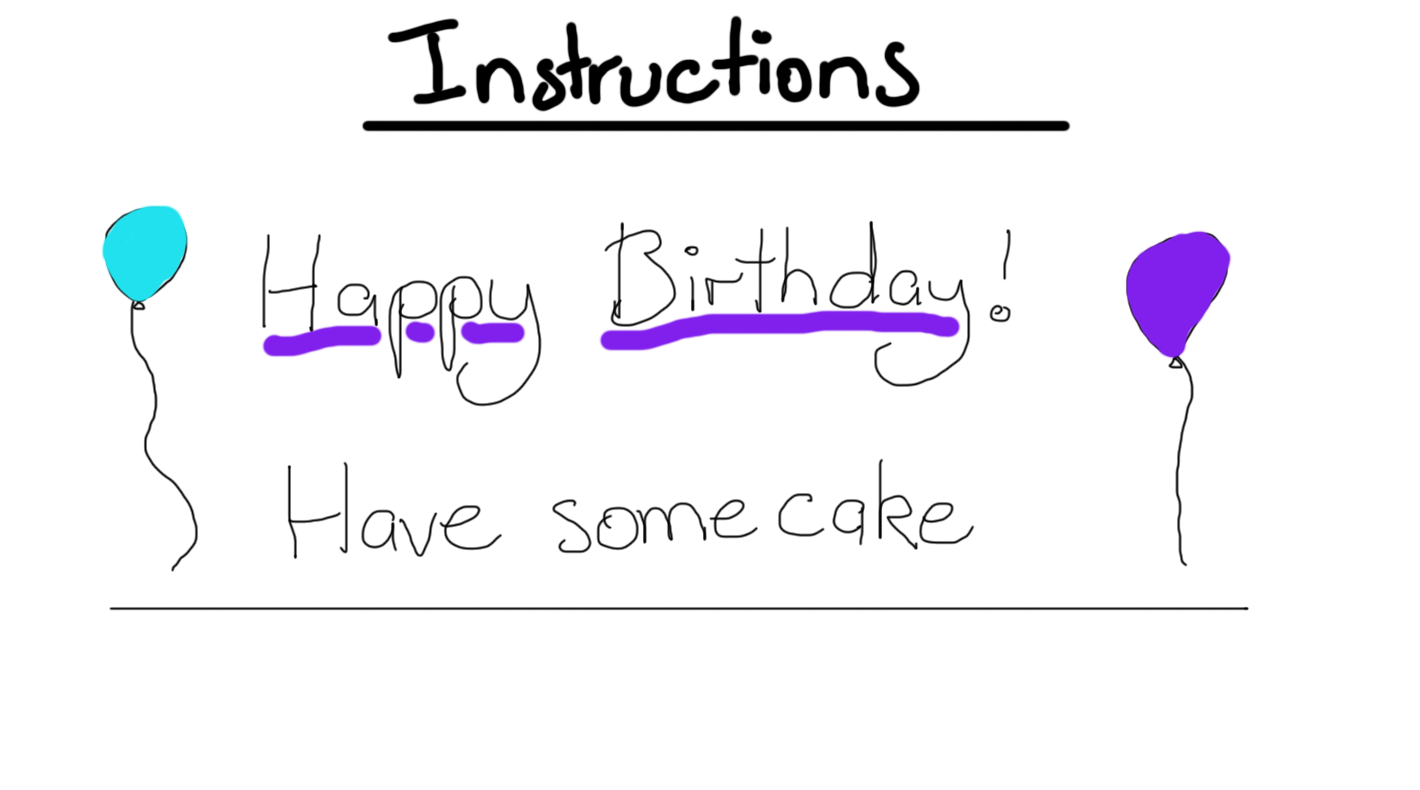 Instructions
Happy Birthday!
Have some cake